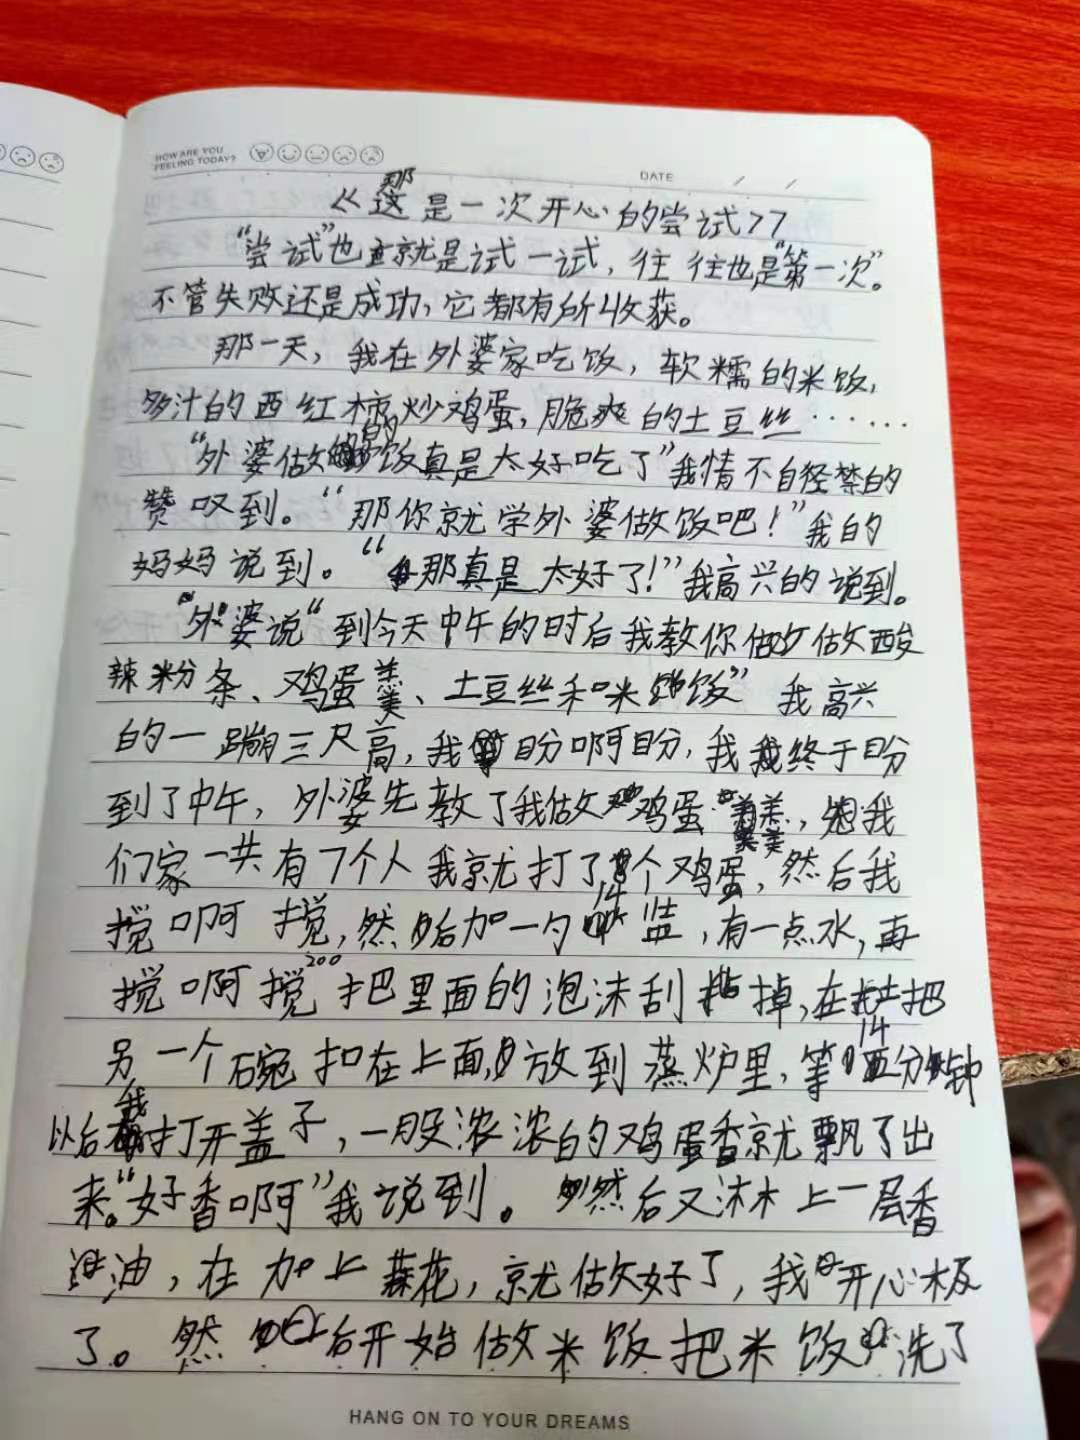 HOW ARE YOU
FEELING TODAY?
DATE / /
那
《这是一次开心的尝试》
“尝试”也就是试一试，往往也是“第一次”。
不管失败还是成功，它都有所收获。
那一天，我在外婆家吃饭，软糯的米饭，
多汁的西红柿炒鸡蛋，脆爽的土豆丝……
“外婆做的饭真是太好吃了”我情不自禁的
赞叹到。“那你就学外婆做饭吧！”我的
妈妈说到。“那真是太好了！”我高兴的说到。
“外婆说“到今天中午的时后我教你做酸
辣粉条、鸡蛋羹、土豆丝和米饭”我高兴
的一蹦三尺高，我盼啊盼，我终于盼
到了中午，外婆先教了我做鸡蛋羹，想我
们家一共有7个人我就打了个鸡蛋，然后我
14
搅啊搅，然后加一勺盐，有一点水，再
200
搅啊搅把里面的泡沫刮掉，在把
14
另一个碗扣在上面，放到蒸炉里，等分钟
我
以后打开盖子，一股浓浓的鸡蛋香就飘了出
来。“好香啊”我说到。然后又沐上一层香
油，在加上蒜花，就做好了，我开心极
了。然后开始做米饭把米饭洗了
HANG ON TO YOUR DREAMS